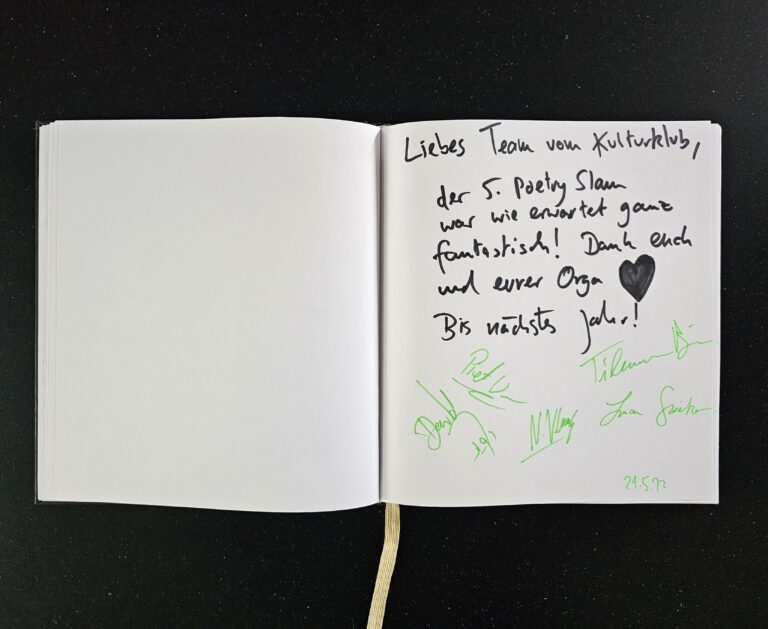 Liebes Team vom Kulturklub,
der 5. Poetry Slam
war wie erwartet ganz
fantastisch! Dank euch
und eurer Orga
Bis nächstes Jahr!
Tilman
N. Klug
21.5.22